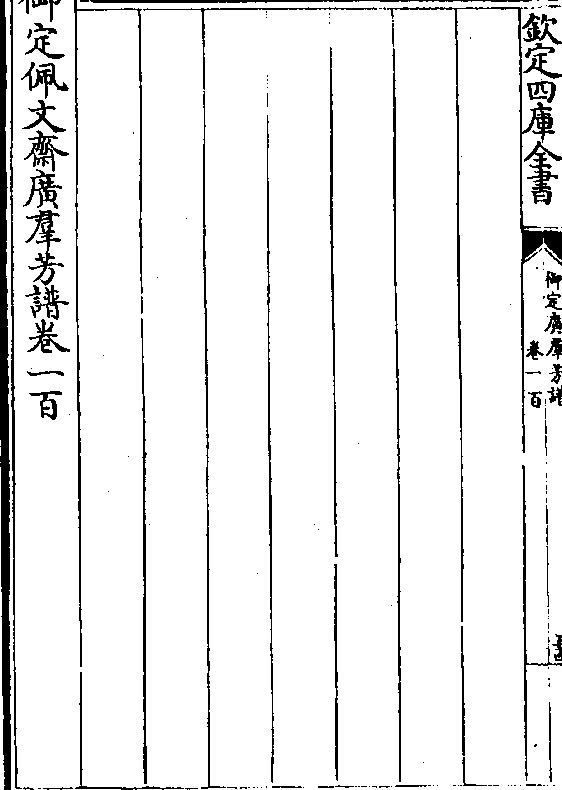 欽定四庫全書
御定廣羣芳譜
卷一百
御定佩文齋廣羣芳譜卷一百